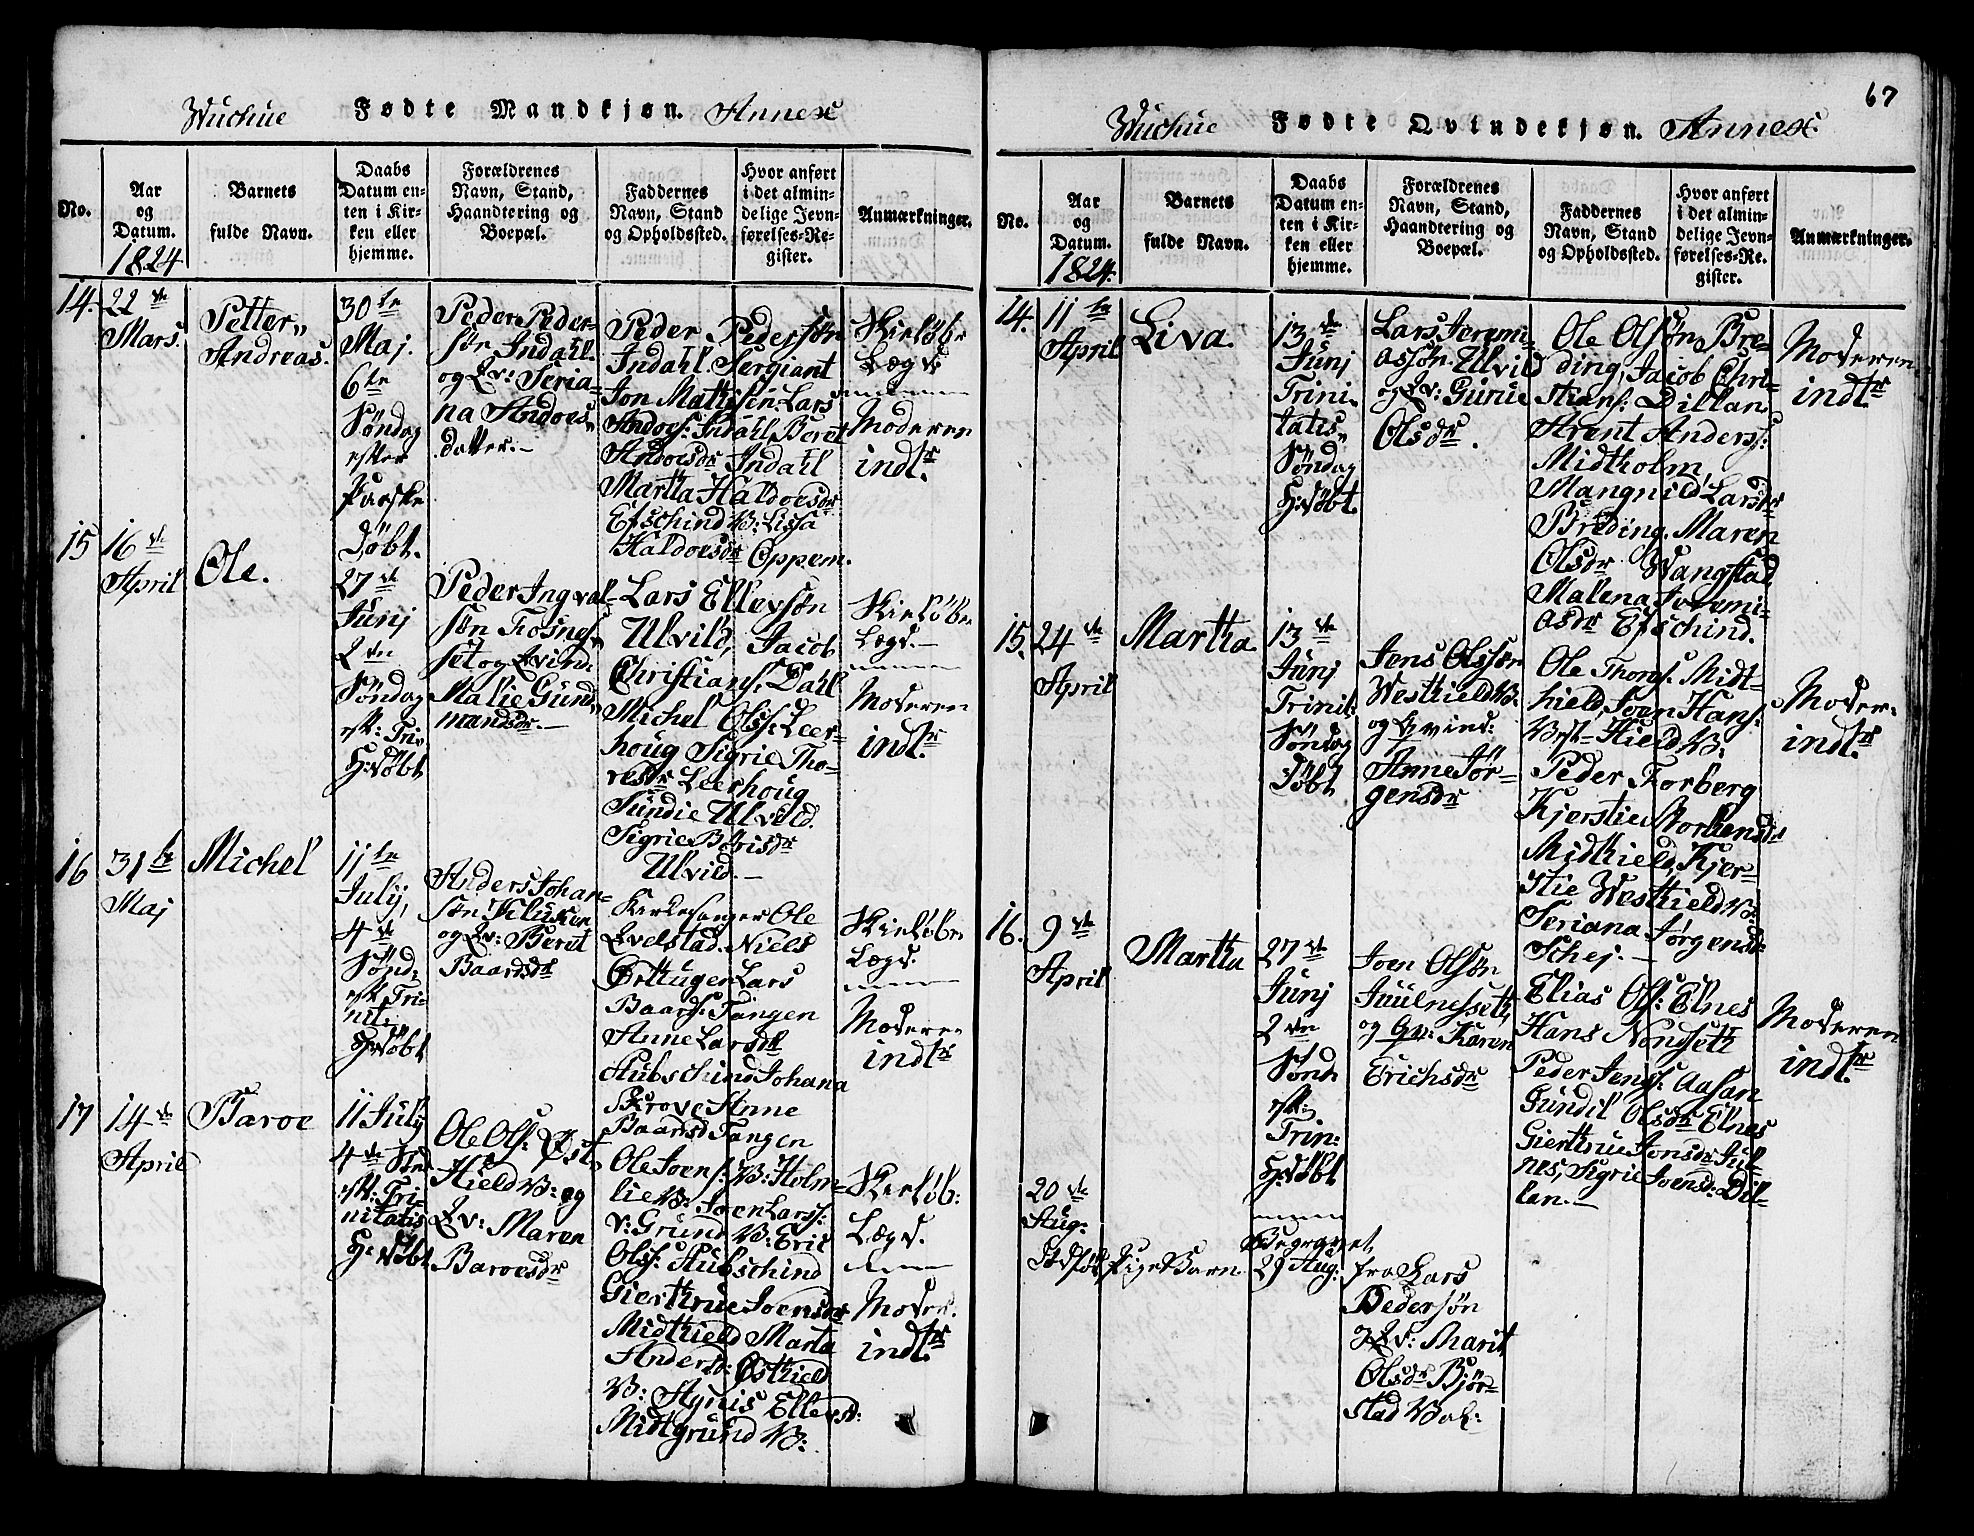 Wuchue Fødte Mandkjøn. Annex
No.
Aar
og
Datum.
1824
Barnets
fulde Navn.
Daabs
Datum en-
ten i Kir-
ken eller
hjemme.
Forældrenes
Navn, Stand,
Haandtering og
Boepæl.
Faddernes
Navn, Stand
og Opholdssted.
Hvor anført
i det almin-
delige Jevn-
førelses-Re-
gister.
Anmærkninger.
14.
22de
Mars.
Petter„
Andreas.
30te
Maj.
6te
Søndag
efter
Paaske
Døbt.
Peder Peder-
søn Indahl.
og Qv: Seria-
na Andoes„
datter.-
Peder Pedersøn
Indahl. Sergiant
Jon Mathisen. Lars
Andoes: Indahl, Beret
Andoesdr Indahl
Martha Haldoesdr
Efschind V: Lissa
Haldoesdr Oppem.
Skieløbr
Lægd
Moderen
indl.
15
16de
April
Ole.
27de
Junj
2den
Søndag
eft: Tri,
H: døbt
Peder Ingval-
søn Fosnes„
set og Qvind
Malie Gund„
mandsdr.-
Lars Ellevsøn
Ulvild, Jacob
Christians: Dahl
Michel Olss: Leer-
houg Sigrie Tho-
resdr Leerhoug
Gundie Ulvild.
Sigrie Boisdr
Ulvild.-
Skieløbr
Lægd.-
Moderen
indl.
16
31te
Maj
Michel
11te
July,
4de
Sønd:
eft. Tri-
nit:
H: døbt
Anders Johan-
søn Kluken
og Qv: Beret
Baardsdr
Kirkesanger Ole
Qvelstad. Niels
Ørthugen Lars
Baars: Tangen
Anne Larsdr
Hubschind Johana
Skrove Anne
Baarsd Tangen
Skieløbr
Lægd.
Moderen
indl.
17
14de
April
Baroe
11 July
4de Sønd
eft: Tri-
nitatis
H: døbt
Ole Ols: Øst„
Hield V: og
Qv: Maren
Baroesdr
Ole Joens: V: Holm-
lie V: Joen Larss:
v: Grund V: Eric
Olss: Hubschind
Gierthrue Joensdr
Midthield Marta
Andersd: Østhield
V: Agnis Ellevsd:
Midtgrund V:
Skieløb:
Lægd.
Moder:
indl.
67
Wuchue Fødte Qvindekjøn. Annex:
No.
Aar
og
Datum.
1824.
Barnets
fulde Navn.
Daabs
Datum en-
ten i Kir-
ken eller
hjemme.
Forældrenes
Navn, Stand,
Haandtering og
Boepæl.
Faddernes
Navn, Stand
og Opholdssted.
Hvor anført
i det almin-
delige Jevn-
førelses-Re-
gister.
Anmærkninger.
14.
11te
April
Liva.
13de
Junj
Trini-
tatis„
Søndag
H: døbt.
Lars Jeremi-
assøn Ulvild
og Qv: Gurue
Olsdr.
Ole Olsøn Bre-
ding, Jacob Chri-
stians: Dillan,
Arent Anderss:
Midtholm,
Mangnild Larsdr
Breding. Maren
Olsdr Wangstad
Malena Jeremi-
asdr Efschind.
Moderen
indl.
15.
24de
April
Martha
13de
Junj
Trinit:
Søndag
Døbt
Jens Olssøn
Westhield V:
og Qvind:
Anne Jør-
gensdr
Ole Thors: Midt-
hield, Joen Hans:
Vest-Hield V:
Peder Forberg
Kjerstie Morthensdr
Midthield, Kjer-
stie Westhield V:
Seriana Jørgensdr
Schej.-
Moder:
indl.
16.
9de
April
Martha
27de
Junj
2den
Sønd
eft:
Trin:
H: døbt
Joen Olsøn
Juulnesseth
og Qv: Karen
Erichsdr
Elias Ols: Elnes
Hans Nondseth
Peder Jens: Aasan
Gundil Olsdr Elnes
Gierthrue Jonsdr Jul-
nes, Sigrie Joensd: Dil-
lan.-
Moderen
indl.
20de
Aug:
Dødfød Pige Barn
Begravet
29 Aug:
fra Lars
Pedersøn
og Qv: Marit
Olsdr Bjør-
stad Val: